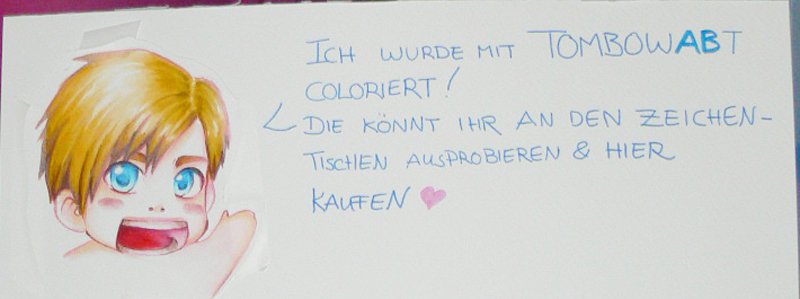 ICH WURDE MIT TOMBOWABT
COLORIERT!
DIE KÖNNT IHR AN DEN ZEICHEN-
TISCHEN AUSPROBIEREN & HIER
KAUFEN